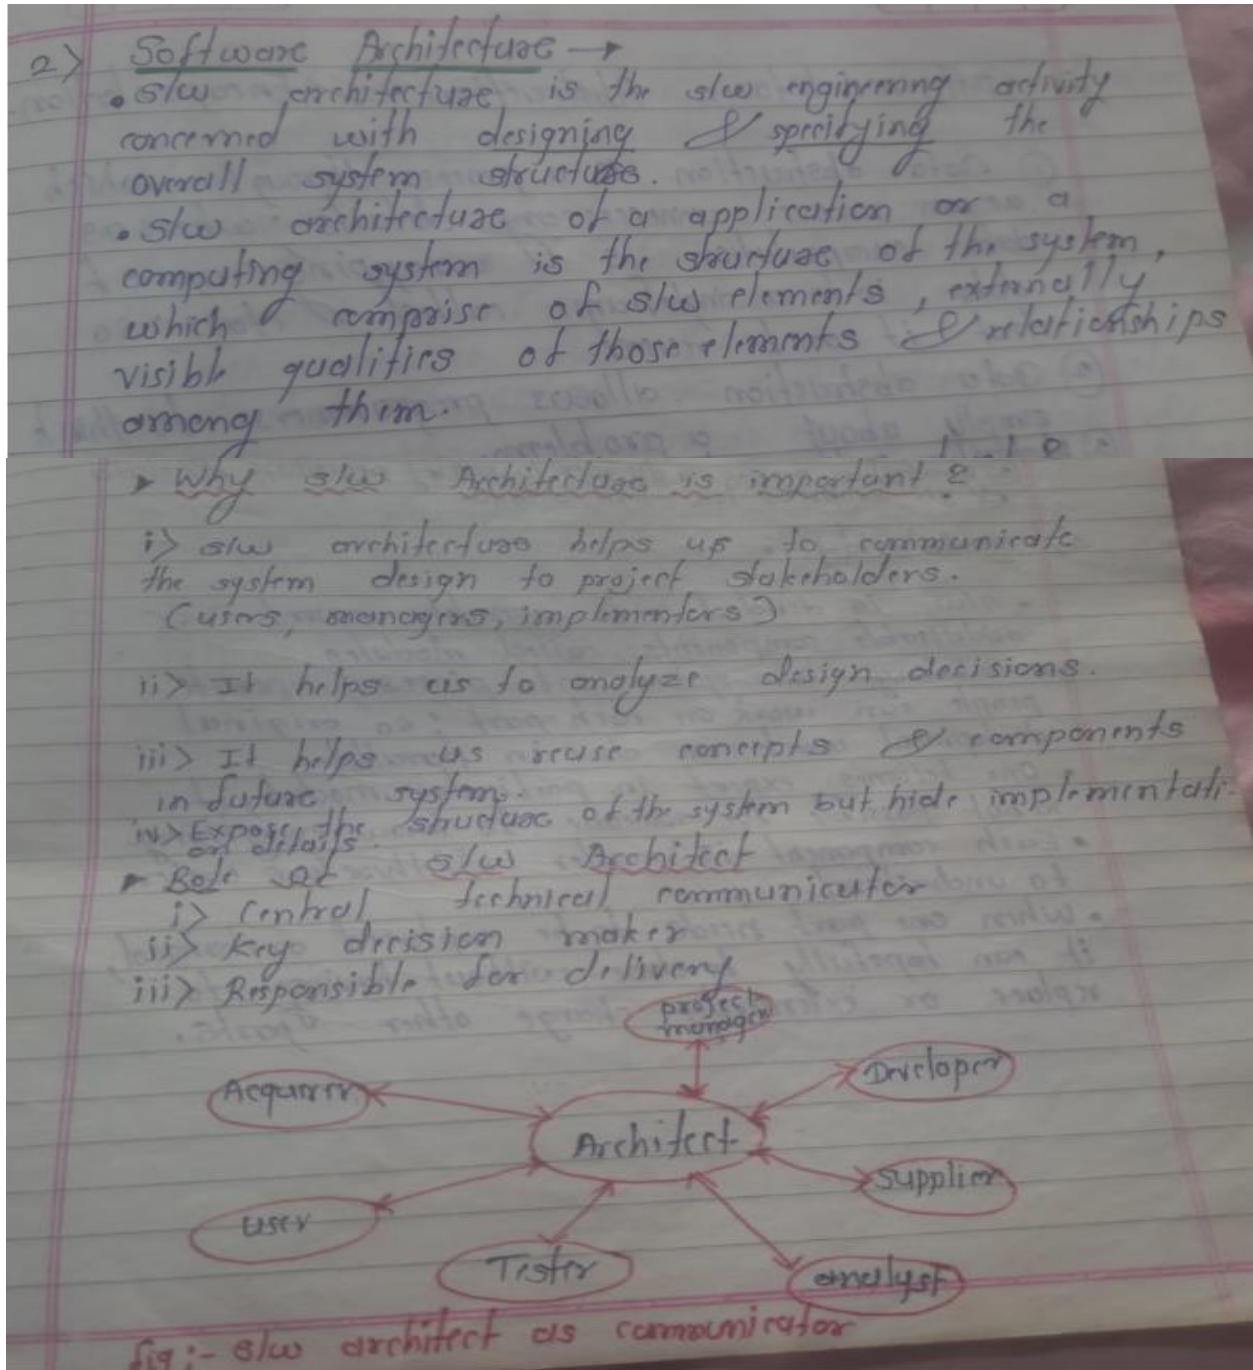 2> Software Architecture →
• s/w architecture is the s/w engineering activity
concerned with designing & specifying the
overall system structure.
• s/w architecture of a application or a
computing system is the structure of the system,
which comprise of s/w elements, externally
visible qualities of those elements & relationships
among them.
▸ Why s/w Architecture is important ?
i> s/w architecture helps us to communicate
the system design to project stakeholders.
(users, managers, implementers)
ii> It helps us to analyze design decisions.
iii> It helps us reuse concepts & components
in future systems.
iv> Expose the structure of the system but hide implementati
on details.
▸ Role of s/w Architect
i> Central technical communicator
ii> Key decision maker
iii> Responsible for delivery
project
manager
Acquirer
Developer
Architect
supplier
user
Tester
analyst
fig :- s/w architect as communicator